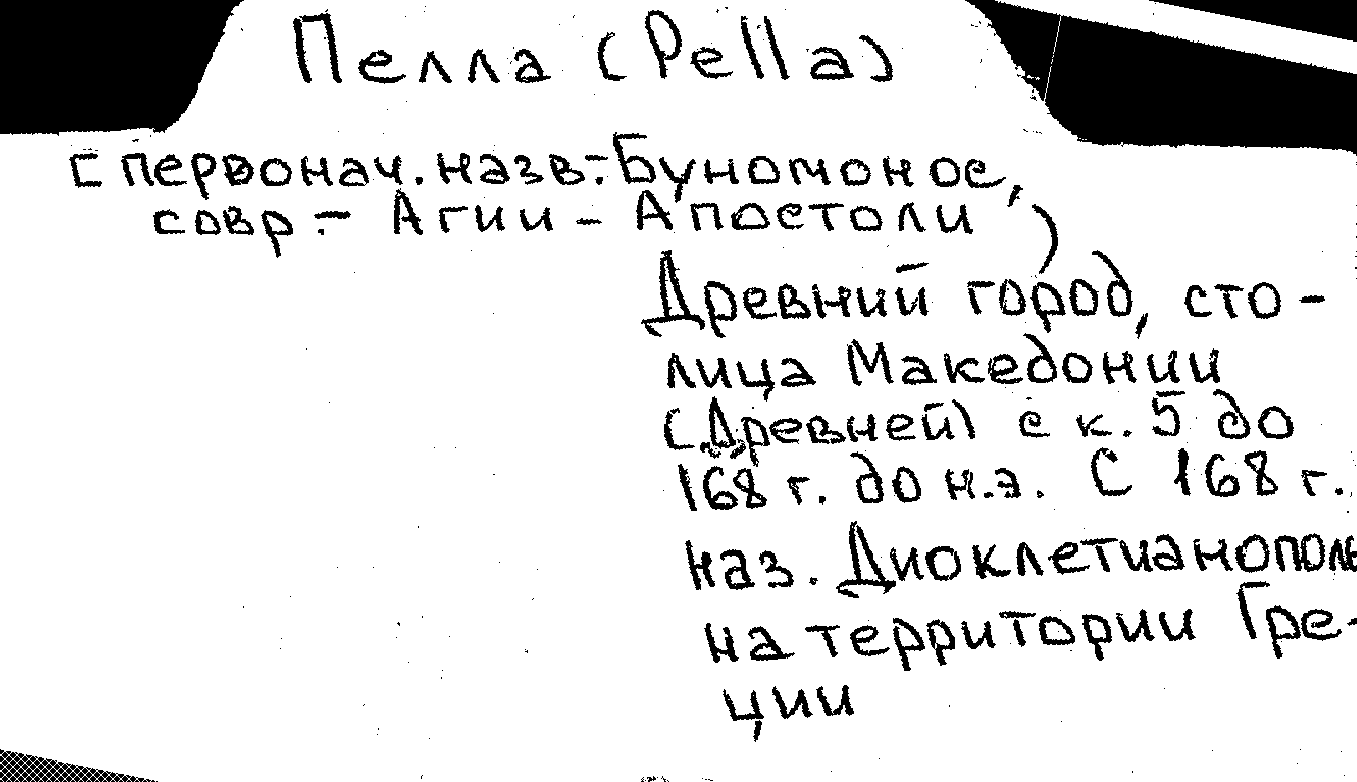 Пелла (Pella)
[первонач. назв.-Буномонос,
совр.- Агии - Апостоли)
Древний город, сто-
лица Македонии
(Древней) с к. 5 до
168 г. до н.э. С 168 г.
наз. Диоклетианополь
на территории Гре-
ции